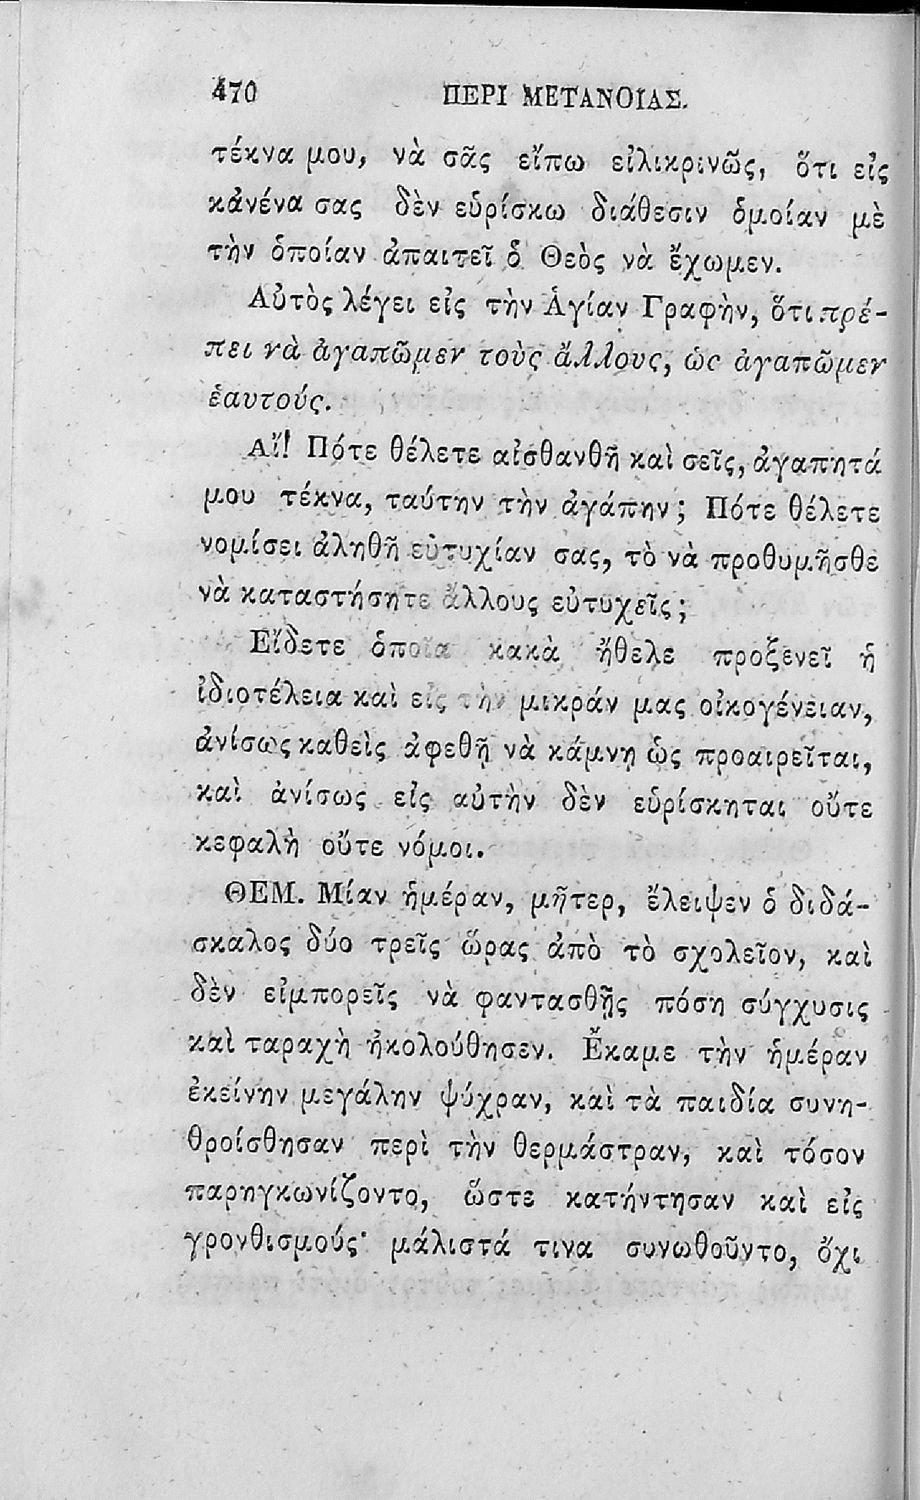 470 ΠΕΡΙ ΜΕΤΑΝΟΙΑΣ.
τέκνα μου, νὰ σᾶς εἴπω εἰλικρινῶς, ὅτι εἰς
κἀνένα σας δὲν εὑρίσκω διάθεσιν ὁμοίαν μὲ
τὴν ὁποίαν ἀπαιτεῖ ὁ Θεὸς νὰ ἔχωμεν.
Αὐτὸς λέγει εἰς τὴν Ἁγίαν Γραφὴν, ὅτι πρέ-
πει νὰ ἀγαπῶμεν τοὺς ἄλλους, ὡς ἀγαπῶμεν
ἑαυτούς.
Αἴ! Πότε θέλετε αἰσθανθῆ καὶ σεῖς, ἀγαπητά
μου τέκνα, ταύτην τὴν ἀγάπην; Πότε θέλετε
νομίσει ἀληθῆ εὐτυχίαν σας, τὸ νὰ προθυμῆσθε
νὰ καταστήσητε ἄλλους εὐτυχεῖς;
Εἴδετε ὁποῖα κακὰ ἤθελε προξενεῖ ἡ
ἰδιοτέλεια καὶ εἰς τὴν μικράν μας οἰκογένειαν,
ἀνίσως καθεὶς ἀφεθῇ νὰ κάμνῃ ὡς προαιρεῖται,
καὶ ἀνίσως εἰς αὐτὴν δὲν εὑρίσκηται οὔτε
κεφαλὴ οὔτε νόμοι.
ΘΕΜ. Μίαν ἡμέραν, μῆτερ, ἔλειψεν ὁ διδά-
σκαλος δύο τρεῖς ὥρας ἀπὸ τὸ σχολεῖον, καὶ
δὲν εἰμπορεῖς νὰ φαντασθῇς πόση σύγχυσις
καὶ ταραχὴ ἠκολούθησεν. Ἔκαμε τὴν ἡμέραν
ἐκείνην μεγάλην ψύχραν, καὶ τὰ παιδία συνη-
θροίσθησαν περὶ τὴν θερμάστραν, καὶ τόσον
παρηγκωνίζοντο, ὥστε κατήντησαν καὶ εἰς
γρονθισμούς· μάλιστά τινα συνωθοῦντο, ὄχι